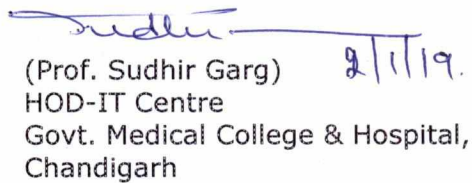 Sudhir
(Prof. Sudhir Garg) 2/1/19.
HOD-IT Centre
Govt. Medical College & Hospital,
Chandigarh